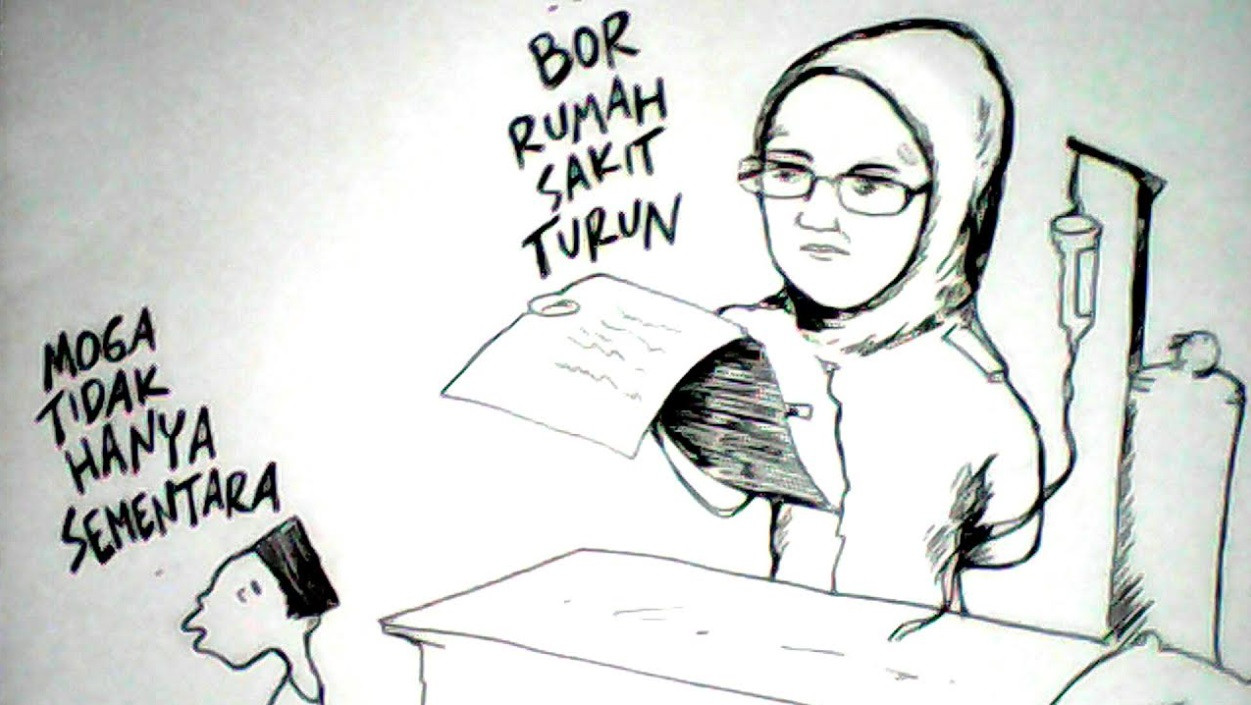 BOR
RUMAH
SAKIT
TURUN
MOGA
TIDAK
HANYA
SEMENTARA